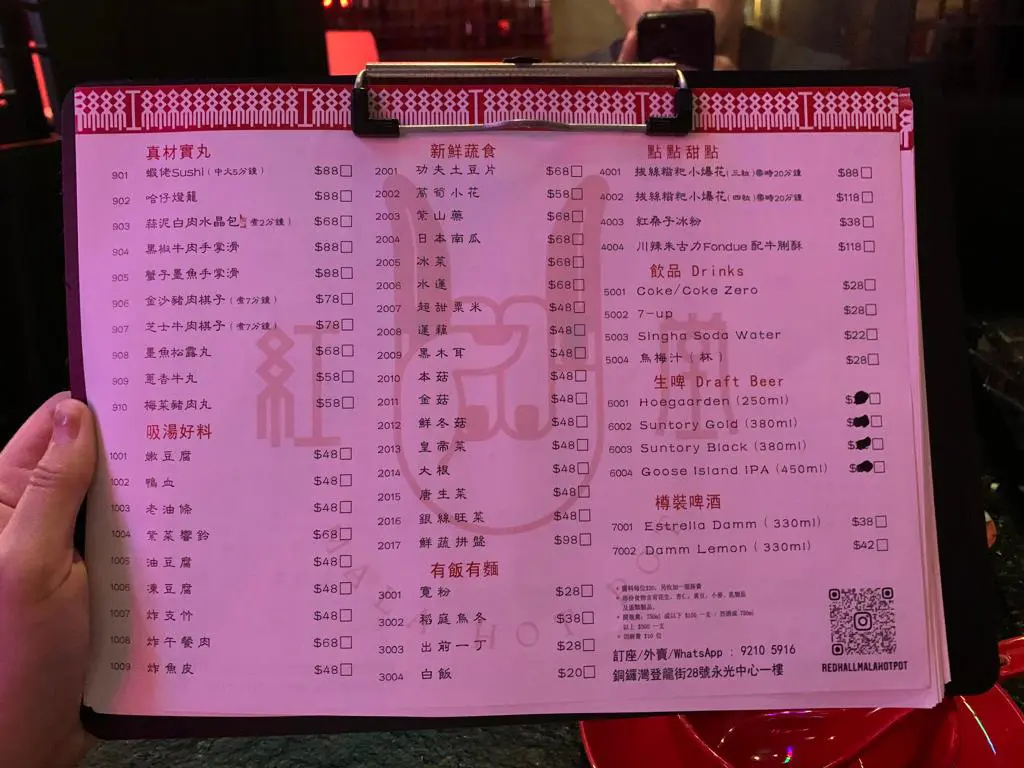 真材實丸
901 蝦佬Sushi (中火5分鐘) $88
902 哈仔燈籠 $88
903 蒜泥白肉水晶包 (煮2分鐘) $68
904 黑椒牛肉手掌滑 $88
905 蟹子墨魚手掌滑 $88
906 金沙豬肉棋子 (煮7分鐘) $78
907 芝士牛肉棋子 (煮7分鐘) $78
908 墨魚松露丸 $68
909 蔥香牛丸 $58
910 梅菜豬肉丸 $58
吸湯好料
1001 嫩豆腐 $48
1002 鴨血 $48
1003 老油條 $48
1004 紫菜響鈴 $68
1005 油豆腐 $48
1006 凍豆腐 $48
1007 炸支竹 $48
1008 炸午餐肉 $68
1009 炸魚皮 $48
新鮮蔬食
2001 功夫土豆片 $68
2002 萵筍小花 $58
2003 紫山藥 $68
2004 日本南瓜 $68
2005 冰菜 $68
2006 水蓮 $68
2007 超甜粟米 $48
2008 蓮藕 $48
2009 黑木耳 $48
2010 本菇 $48
2011 金菇 $48
2012 鮮冬菇 $48
2013 皇帝菜 $48
2014 大根 $48
2015 唐生菜 $48
2016 銀絲旺菜 $48
2017 鮮蔬拼盤 $98
有飯有麵
3001 寬粉 $28
3002 稻庭烏冬 $38
3003 出前一丁 $28
3004 白飯 $20
點點甜點
4001 拔絲糍粑小爆花 (三粒) 需時20分鐘 $88
4002 拔絲糍粑小爆花 (四粒) 需時20分鐘 $118
4003 紅桑子冰粉 $38
4004 川辣朱古力Fondue 配牛脷酥 $118
飲品 Drinks
5001 Coke/Coke Zero $28
5002 7-up $28
5003 Singha Soda Water $22
5004 烏梅汁 (杯) $28
生啤 Draft Beer
6001 Hoegaarden (250ml)
6002 Suntory Gold (380ml)
6003 Suntory Black (380ml)
6004 Goose Island IPA (450ml)
樽裝啤酒
7001 Estrella Damm ( 330ml) $38
7002 Damm Lemon ( 330ml) $42
* 醬料每位$20, 另收加一服務費
* 部份食物含有花生, 杏仁, 黃豆, 小麥, 乳類品
及蛋類製品,
* 開瓶費: 750ml 或以下 $150 一支 / 烈酒或 750ml
以上 $300 一支
* 切餅費 $10 位
訂座/外賣/WhatsApp : 9210 5916
銅鑼灣登龍街28號永光中心一樓
REDHALLMALAHOTPOT
紅堂